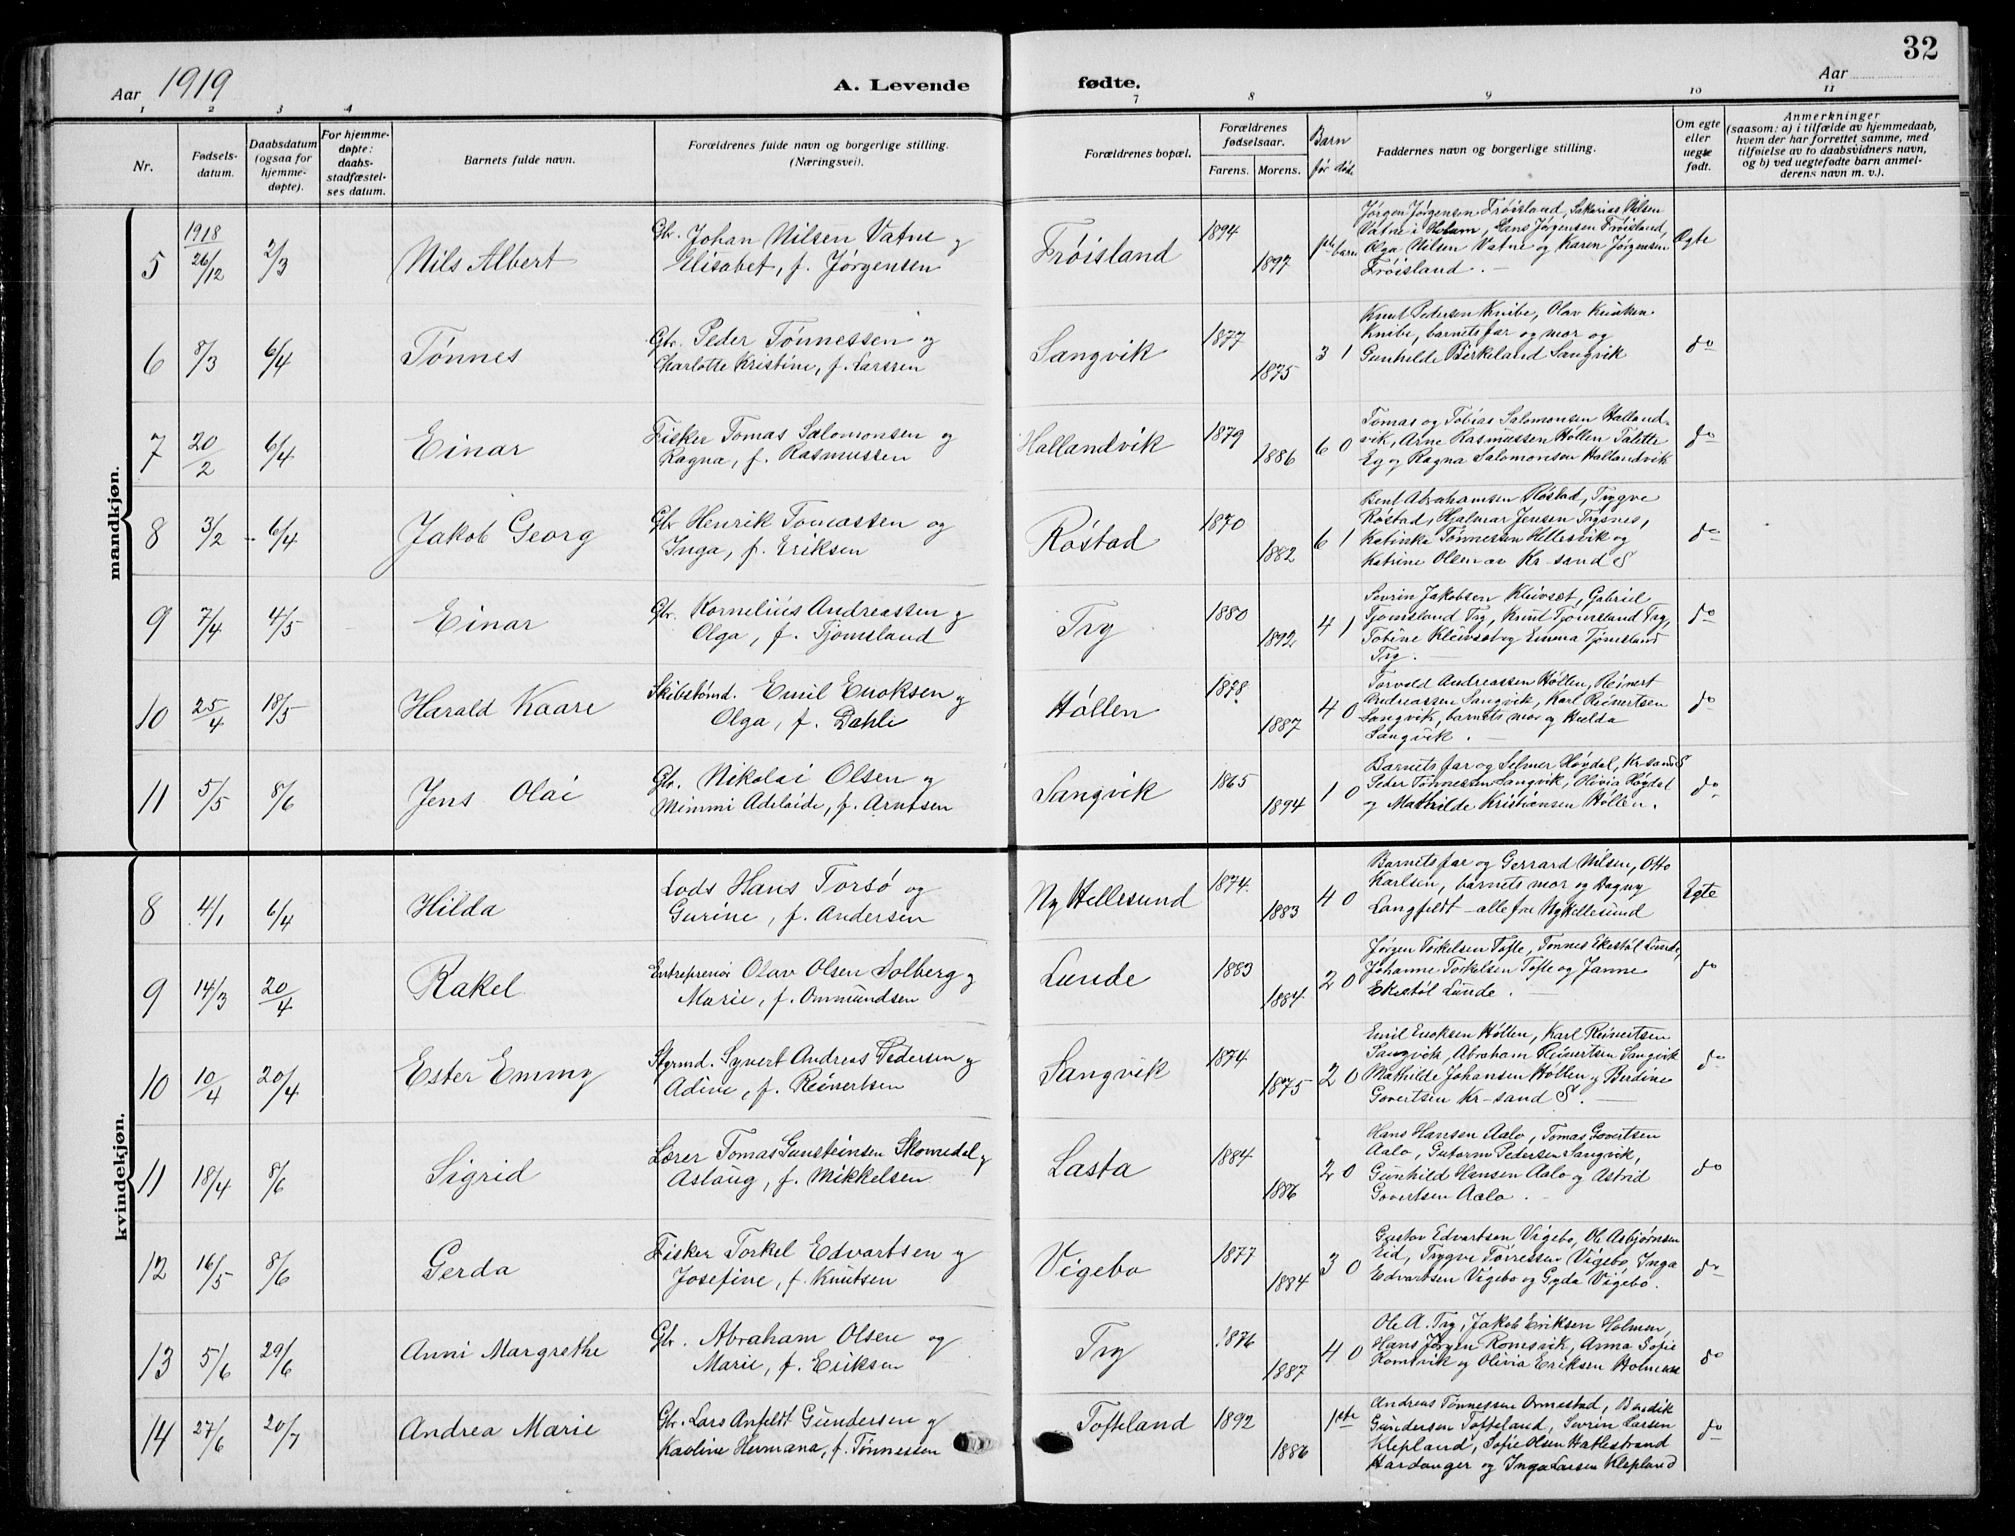 32
Aar 1919
A. Levende fødte.
Aar
1 2 3 4 7 8 9 10 11
Nr.
Fødsels-
datum.
Daabsdatum
(ogsaa for
hjemme-
døpte).
For hjemme-
døpte:
daabs-
stadfæstel-
ses datum.
Barnets fulde navn.
Forældrenes fulde navn og borgerlige stilling.
(Næringsvei).
Forældrenes bopæl.
Forældrenes
fødselsaar.
Farens. Morens.
Barn
før døde
Faddernes navn og borgerlige stilling.
Om egte
eller
uegte
født.
Anmerkninger
(saasom: a) i tilfælde av hjemmedaab,
hvem der har forrettet samme, med
tilføielse av to daabsvidners navn,
og b) ved uegtefødte barn anmel-
derens navn m. v.).
mandkjøn.
5 1918 26/12 2/3 Nils Albert
Gbr. Johan Nilsen Vatne og
Elisabet, f. Jørgensen
Frøisland 1894 1897 1ste barn
Jørgen Jørgensen Frøisland, Sakarias Nilsen
Vatne i Holum, Hans Jørgensen Frøisland,
Olga Nilsen Vatne og Karen Jørgensen
Frøisland.
Egte
6 8/3 6/4 Tønnes
Gbr. Peder Tønnessen og
Charlotte Kristine, f. Larsen
Sangvik 1877 1875 3 1
Knut Pedersen Knibe, Olav Knutsen
Knibe, barnets far og mor og
Gunhilde Birkeland Sangvik
do
7 20/2 6/4 Einar
Fisker Tomas Salomonsen og
Ragna, f. Rasmussen
Hallandvik 1879 1886 6 0
Tomas og Tobias Salomonsen Halland-
vik, Arne Rasmussen Høllen Talette
Eg og Ragna Salomonsen Hallandvik
do
8 3/2 6/4 Jakob Georg
Gbr Henrik Tomassen og
Inga, f. Eriksen
Røstad 1870 1882 6 1
Bent Abrahamsen Røstad, Trygve
Røstad, Hjalmar Jensen Trysnes,
Katinka Tønnessen Hellesvik og
Katrine Olsen av Kr-sand S
do
9 7/4 4/5 Einar
Gbr. Kornelius Andreassen og
Olga, f. Tjomsland
Try 1880 1892 4 1
Sevrin Jakobsen Kleivset, Gabriel
Tjomsland Try, Knut Tjomsland Try,
Tobine Kleivset og Emma Tjomsland
Try.
do
10 25/4 18/5 Harald Kaare
Skibstømd. Emil Enoksen og
Olga, f. Dahle
Høllen 1878 1887 4 0
Torvald Andreassen Høllen, Reinert
Andreassen Sangvik, Karl Reinertsen
Sangvik, barnets mor og Hulda
Sangvik.
do
11 5/5 8/6 Jens Olai
Gbr. Nikolai Olsen og
Mimmi Adelaide, f. Arntsen
Sangvik 1865 1894 1 0
Barnets far og Selmer Høydal, Kr-sand S
Peder Tønnessen Sangvik, Olivia Høydal
og Mathilde Kristiansen Høllen.
do
kvindekjøn.
8 4/1 6/4 Hilda
Lods Hans Torsø og
Gurine, f. Andersen
Ny Hellesund 1874 1883 4 0
Barnets far og Gerrard Nilsen, Otto
Karlsen, barnets mor og Dagny
Langfeldt - alle fra Ny Hellesund
Egte
9 14/3 20/4 Rakel
Entreprenør Olav Olsen Solberg og
Marie, f. Ommundsen
Lunde 1883 1884 2 0
Jørgen Torkelsen Tofte, Tønnes Ekestøl Lunde,
Johanne Torkelsen Tofte og Janne
Ekestøl Lunde.
do
10 10/4 20/4 Ester Emmy
Styrmd. Syvert Andreas Pedersen og
Adine, f. Reinertsen
Sangvik 1874 1875 2 0
Emil Enoksen Høllen, Karl Reinertsen
Sangvik, Abraham Reinertsen Sangvik
Mathilde Johansen Høllen og Berdine
Govertsen Kr-sand S.
do
11 18/4 8/6 Sigrid
Lærer Tomas Gunsteinsen Skomedal og
Aslaug, f. Mikkelsen
Lasta 1884 1886 2 0
Hans Hansen Aalo, Tomas Govertsen
Aalo, Gutorm Pedersen Sangvik,
Gunhild Hansen Aalo og Astrid
Govertsen Aalo.
do
12 16/5 8/6 Gerda
Fisker Torkel Edvartsen og
Josefine, f. Knutsen
Vigebo 1877 1884 3 0
Gustav Edvartsen Vigebo, Ole Asbjørnsen
Eid, Trygve Tørressen Vigebo, Inga
Edvartsen Vigebo og Gyda Vigebo.
do
13 5/6 29/6 Anni Margrethe
Gbr. Abraham Olsen og
Marie, f. Eriksen
Try 1876 1887 4 0
Ole A. Try, Jakob Eriksen Holmen,
Hans Jørgen Romsvik, Anna Sofie
Romsvik og Olivia Eriksen Holmen
do
14 27/6 20/7 Andrea Marie
Gbr. Lars Anfeldt Gundersen og
Karline Hermana, f. Tønnessen
Tofteland 1892 1886 1ste
Andreas Tønnessen Ormestad, Bendik
Gundersen Tofteland, Sevrin Larsen
Klepland, Sofie Olsen Hatlestrand
Hardanger og Inga Larsen Klepland
do